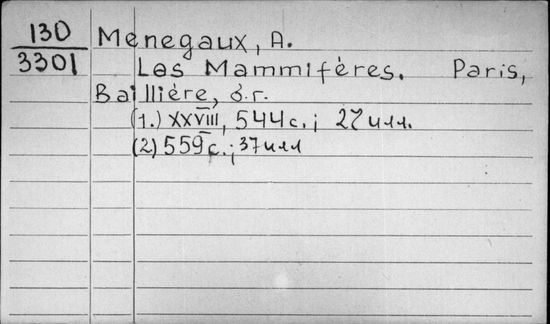 130
3301
Menegaux, A.
Les Mammifères. Paris,
Baillière, б.г.
(1.) XXVIII, 544 с.; 27 илл.
(2) 559 с.; 37 илл